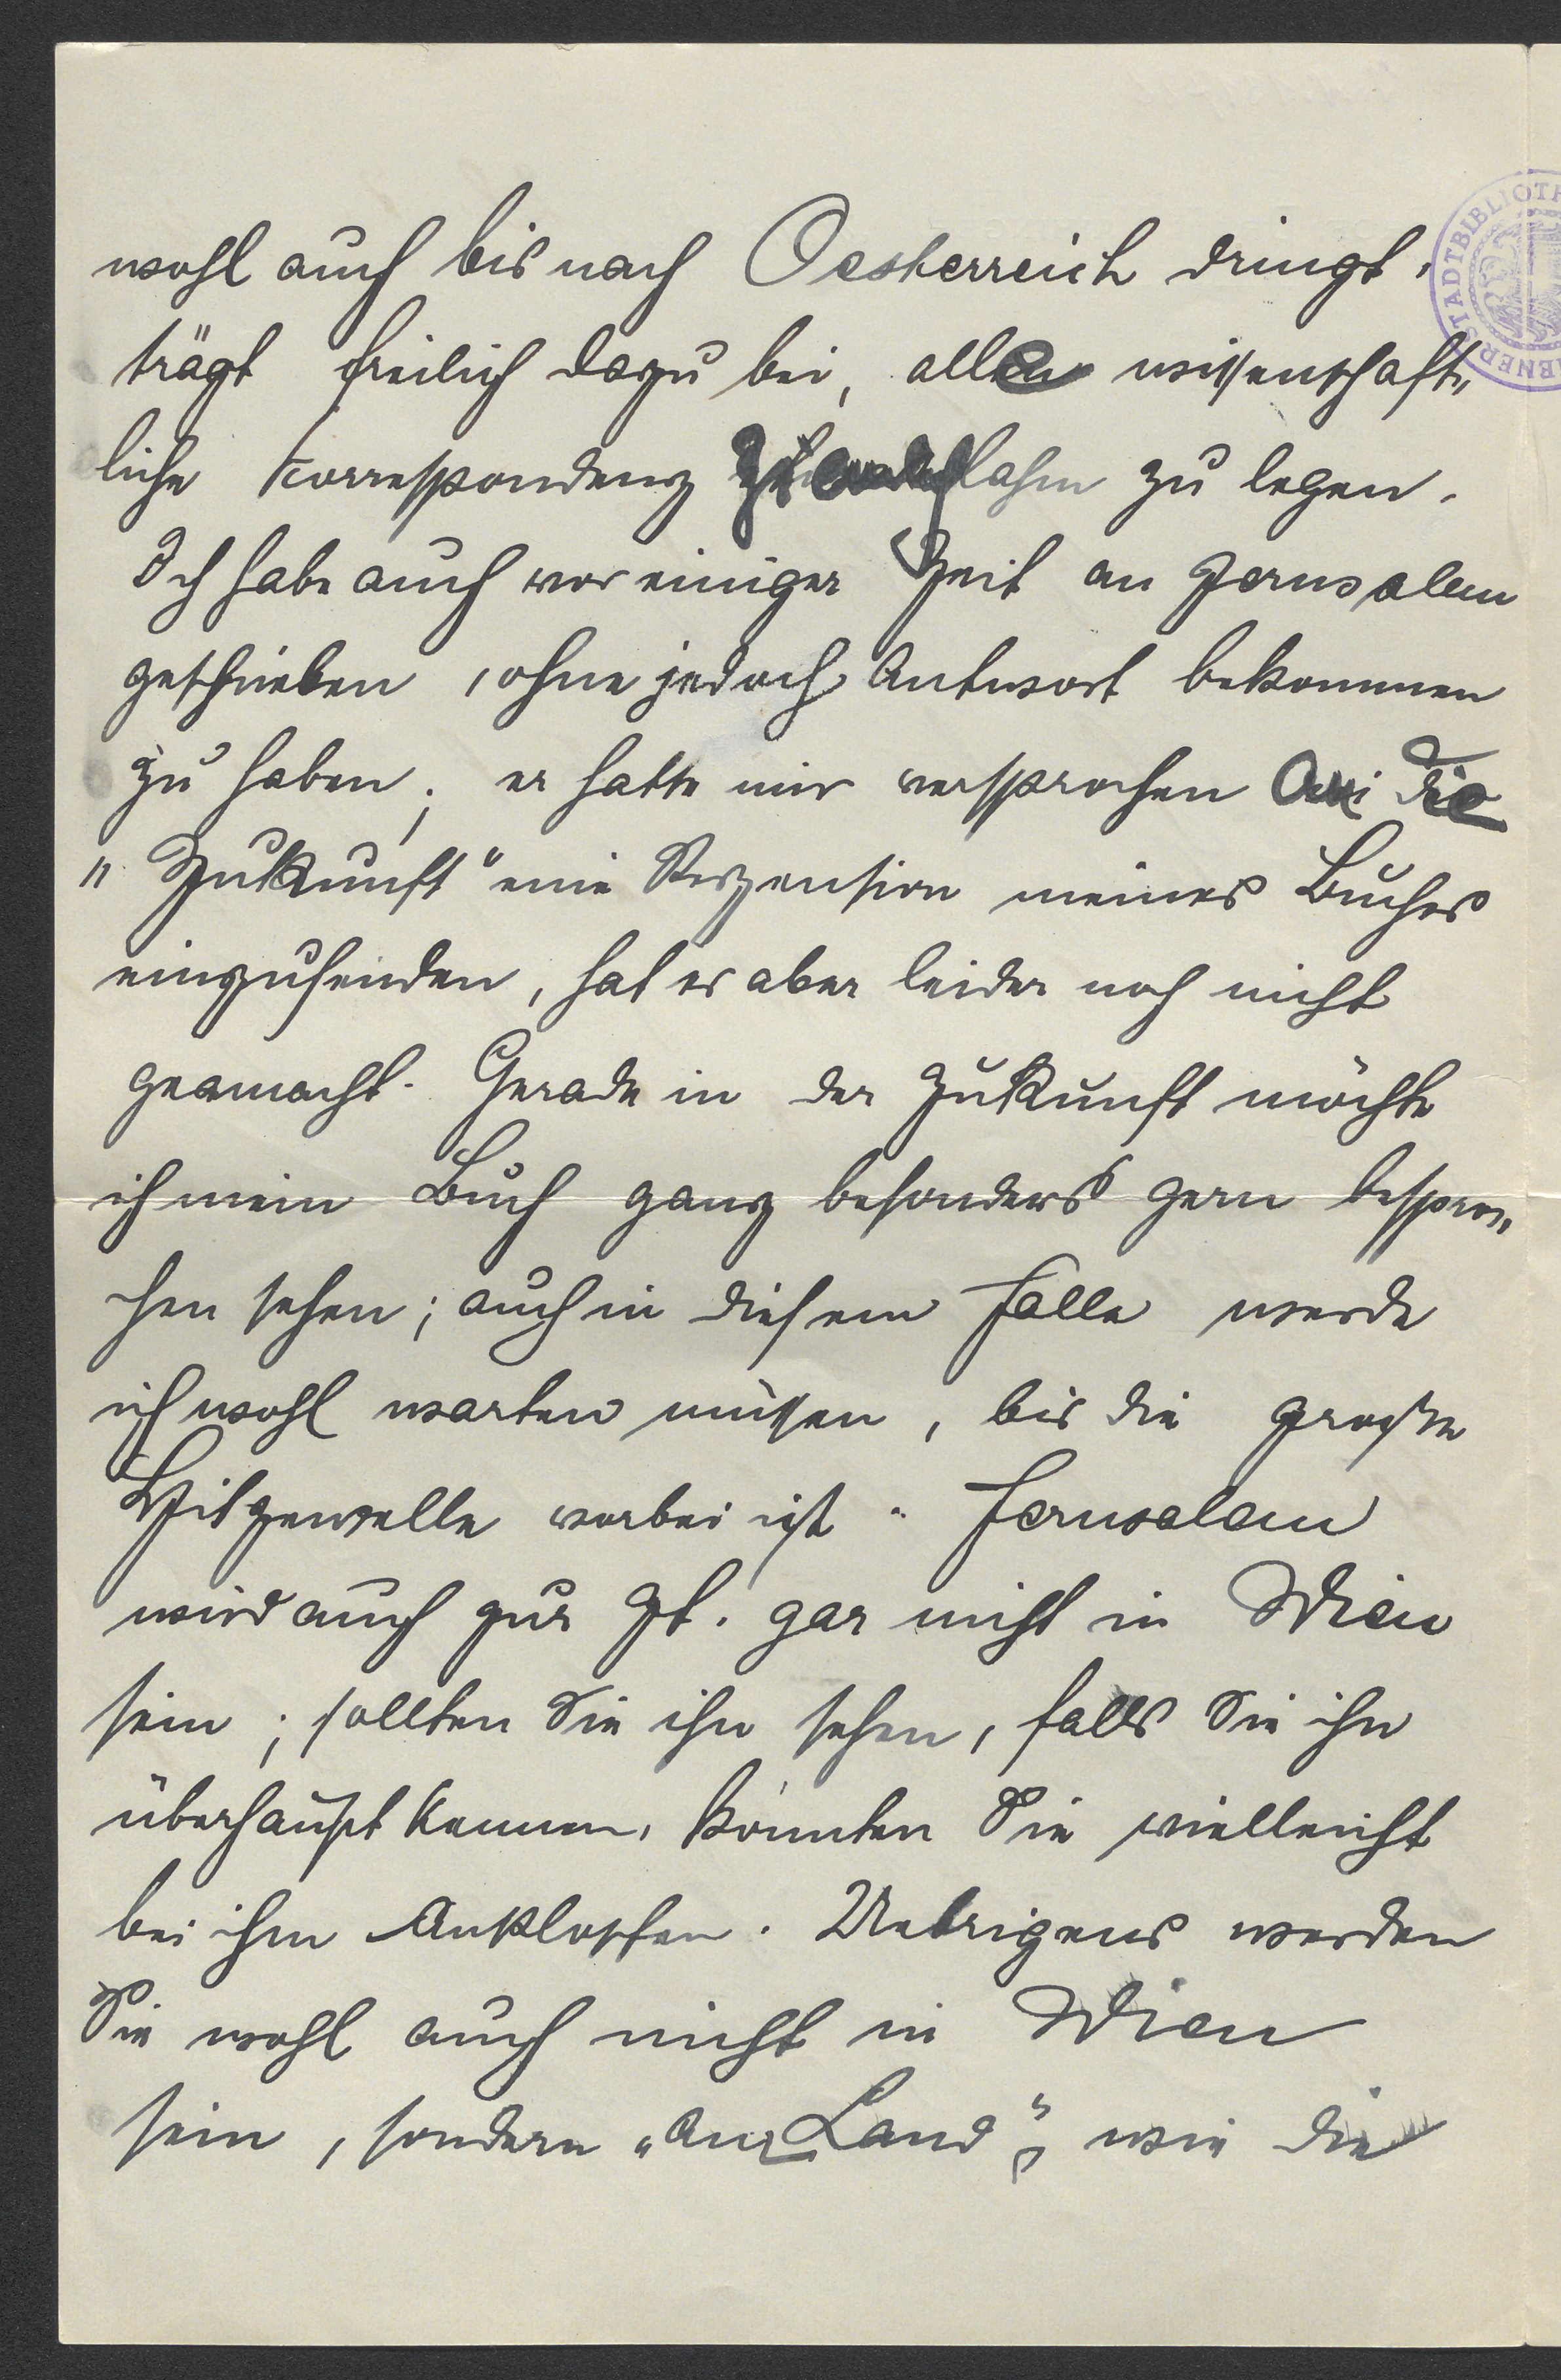 wohl auch bis nach Oesterreich dringt,
trägt freilich dazu bei, alle wissenschaft„
liche Korrespondenz lahm zu legen.
Ich habe auch vor einiger Zeit an Jerusalem
geschrieben, ohne jedoch Antwort bekommen
zu haben; er hatte mir versprochen an die
„Zukunft" eine Rezension meines Buches
einzusenden, hat es aber leider noch nicht
geamacht. Gerade in der Zukunft möchte
ich mein Buch ganz besonders gern bespro„
chen sehen; auch in diesem Falle werde
ich wohl warten müssen, bis die große
Hitzewelle vorbei ist. Jerusalem
wird auch zur Zt. gar nicht in Wien
sein; sollten Sie ihn sehen, falls Sie ihn
überhaupt kennen, könnten Sie vielleicht
bei ihm anklopfen. Uebrigens werden
Sie wohl auch nicht in Wien
sein, sondern „am Land", wie die
STADTBIBLIOTH